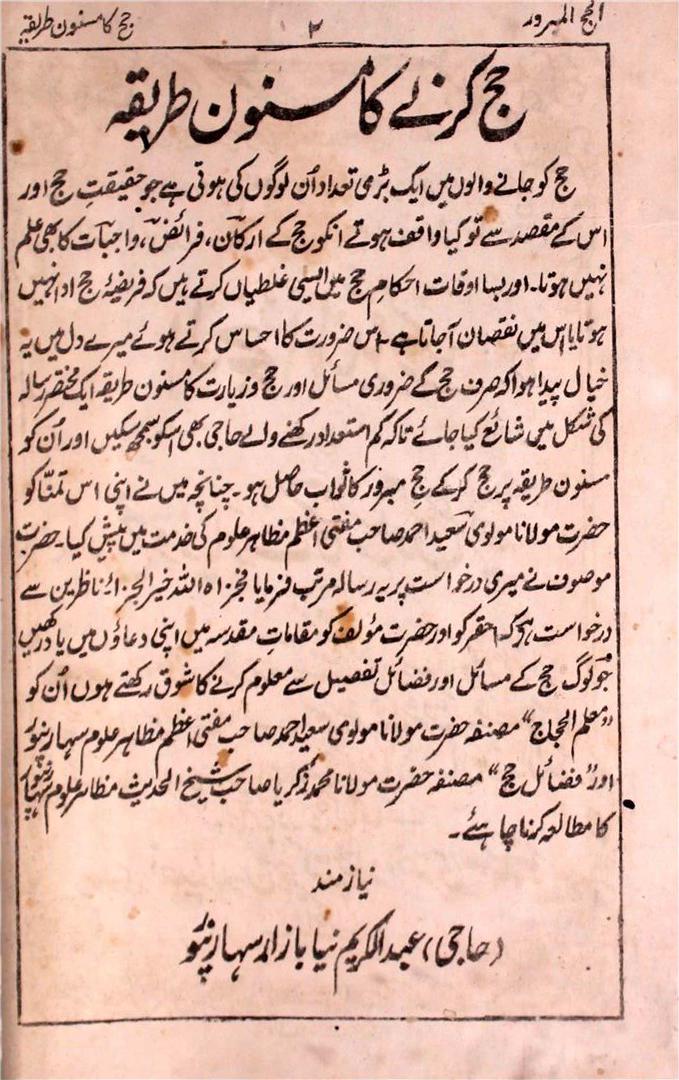 الحج المبرور
۲
حج کا مسنون طریقہ
حج کرنے کا مسنون طریقہ
حج کو جانے والوں میں ایک بڑی تعداد اُن لوگوں کی ہوتی ہے جو حقیقتِ حج اور
اس کے مقصد سے تو کیا واقف ہوتے انکو حج کے ارکان، فرائض، واجبات کا بھی علم
نہیں ہوتا۔ اور بسا اوقات احکامِ حج میں ایسی غلطیاں کرتے ہیں کہ فریضۂ حج ادا نہیں
ہوتا یا اس میں نقصان آجاتا ہے۔ اس ضرورت کا احساس کرتے ہوئے میرے دل میں یہ
خیال پیدا ہوا کہ صرف حج کے ضروری مسائل اور حج و زیارت کا مسنون طریقہ ایک مختصر رسالہ
کی شکل میں شائع کیا جائے تاکہ کم استعداد رکھنے والے حاجی بھی اسکو سمجھ سکیں اور اُن کو
مسنون طریقہ پر حج کرکے حجِ مبرور کا ثواب حاصل ہو۔ چنانچہ میں نے اپنی اس تمنّا کو
حضرت مولانا مولوی سعید احمد صاحب مفتی اعظم مظاہر علوم کی خدمت میں پیش کیا۔ حضرت
موصوف نے میری درخواست پر یہ رسالہ مرتب فرمایا فجزاہ اللہ خیر الجزاء ناظرین سے
درخواست ہیکہ احقر کو اور حضرت مؤلف کو مقاماتِ مقدسہ میں اپنی دعاؤں میں یاد رکھیں
جو لوگ حج کے مسائل اور فضائل تفصیل سے معلوم کرنے کا شوق رکھتے ہوں اُن کو
”معلم الحجاج“ مصنفہ حضرت مولانا مولوی سعید احمد صاحب مفتی اعظم مظاہر علوم سہارنپور
اور ”فضائل حج“ مصنفہ حضرت مولانا محمد زکریا صاحب شیخ الحدیث مظاہر علوم سہارنپور
کا مطالعہ کرنا چاہئے۔
نیازمند
(حاجی) عبدالکریم نیا بازار سہارنپور